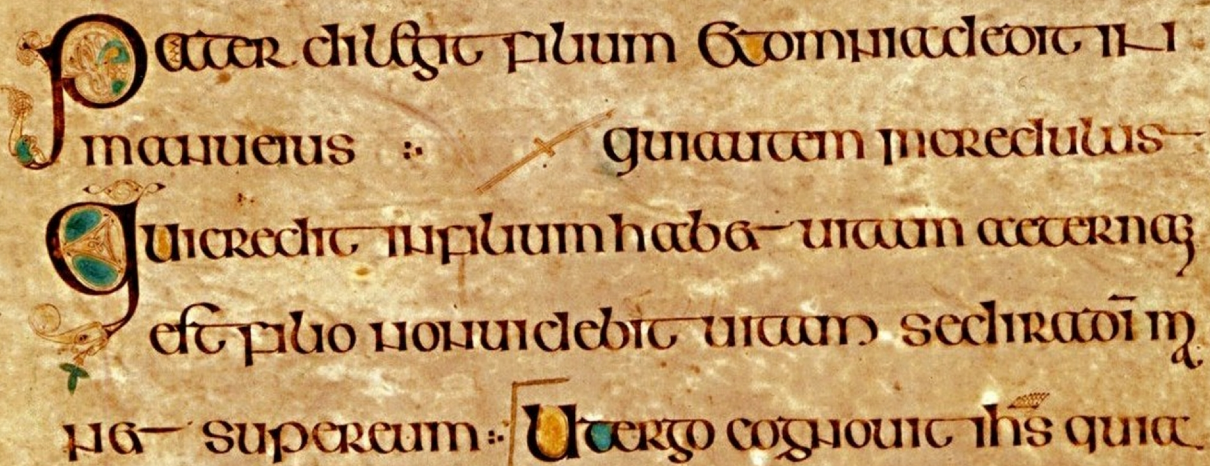 Pater diligit filium et omnia dedit in
manu eius quiautem incredulus
Quicredit infilium habet uitam aeternam
est filio nonuidebit uitam sed ira dī ma
net super eum Ut ergo cognouit ihs quia